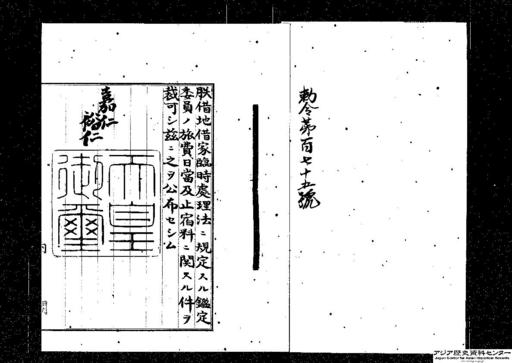 勅令第百七十五號
朕借地借家臨時處理法ニ規定スル鑑定
委員ノ旅費日當及止宿料ニ關スル件ヲ
裁可シ茲ニ之ヲ公布セシム
嘉仁
裕仁
天皇
御璽
アジア歴史資料センター
Japan Center for Asian Historical Records